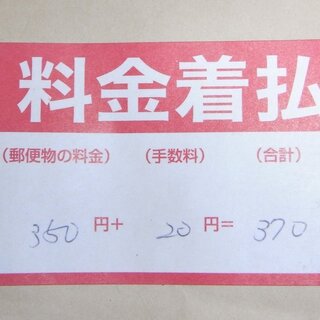 料金着払
(郵便物の料金) (手数料) (合計)
350 円+ 20 円= 370